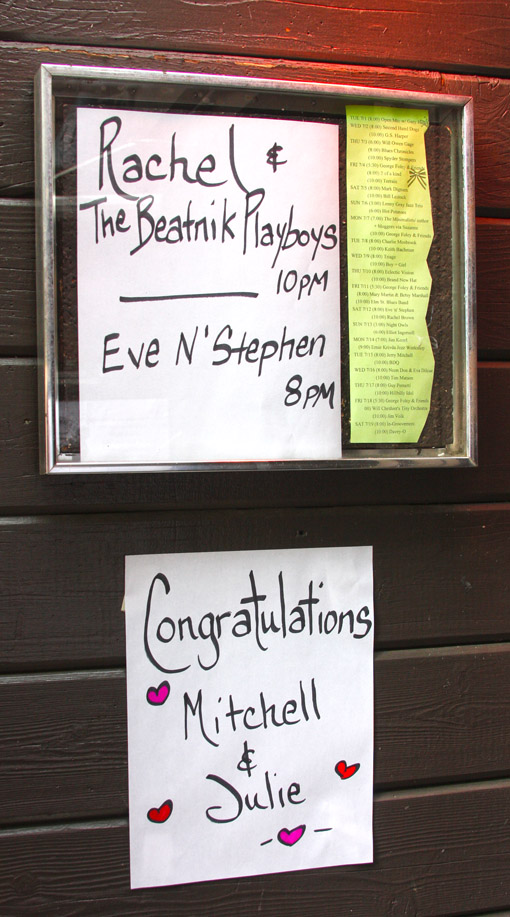 Rachel &
The Beatnik Playboys
10PM
Eve N' Stephen
8PM
TUE 7/1 (8:00) Open Mic w/
WED 7/2 (8:00) Second Hand Dogs
(10:00) G.S. Harper
THU 7/3 (6:00) Will Green Gage
(8:00) Blues Chronicles
(10:00) Spyder Stompers
FRI 7/4 (5:30) George Foley &
(10:00)
SAT 7/5 (8:00) Mark
(10:00) Bill
SUN 7/6 (3:00) Lenny Gray Jazz Trio
(8:00) Hot Potatoes
MON 7/7 (7:00) The
(10:00) George Foley & Friends
TUE 7/8 (8:00) Charlie
(10:00) Keith
WED 7/9 (8:00)
(10:00) Boy + Girl
THU 7/10 (8:00) Eclectic Vision
(10:00) Brand New Hat
FRI 7/11 (5:30) George Foley & Friends
(8:00) Mary Martin & Betsy Marshall
(10:00) Blues Band
SAT 7/12 (8:00) Eve n' Stephen
(10:00) Rachel Brown
SUN 7/13 (3:00) Night Owls
(8:00) Elliot Ingersoll
MON 7/14 (7:00) Jim Koerf
TUE 7/15 (8:00) Jerry Mitchell
(10:00) BDQ
WED 7/16 (8:00)
(10:00) Tim Malone
THU 7/17 (8:00) Guy
(10:00) Hillbilly Idol
FRI 7/18 (5:30) George Foley & Friends
(10:00) Jim Volk
SAT 7/19 (8:00) In-Grooveners
(10:00) Davey O
Congratulations
Mitchell
&
Julie